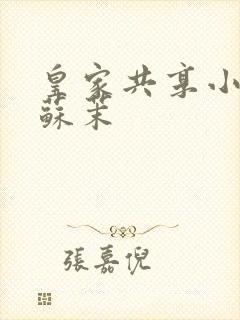 皇家共享小
蘇茉
張嘉倪